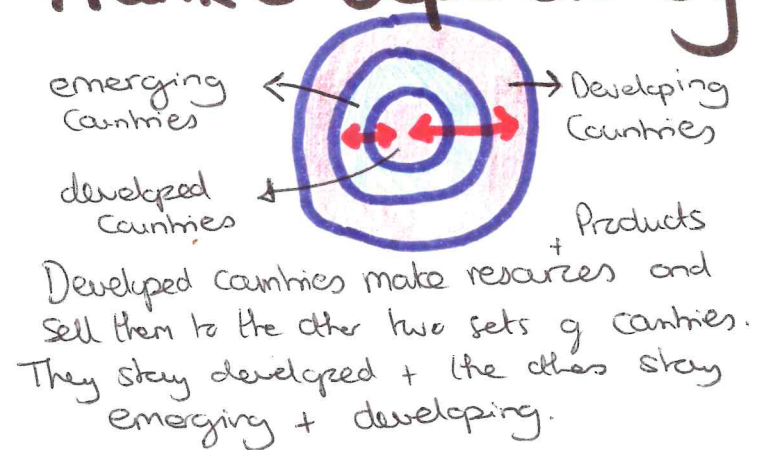 emerging
Countries
Developing
Countries
developed
Countries
+ Products
Developed countries make resources and
sell them to the other two sets of countries.
They stay developed + the others stay
emerging + developing.